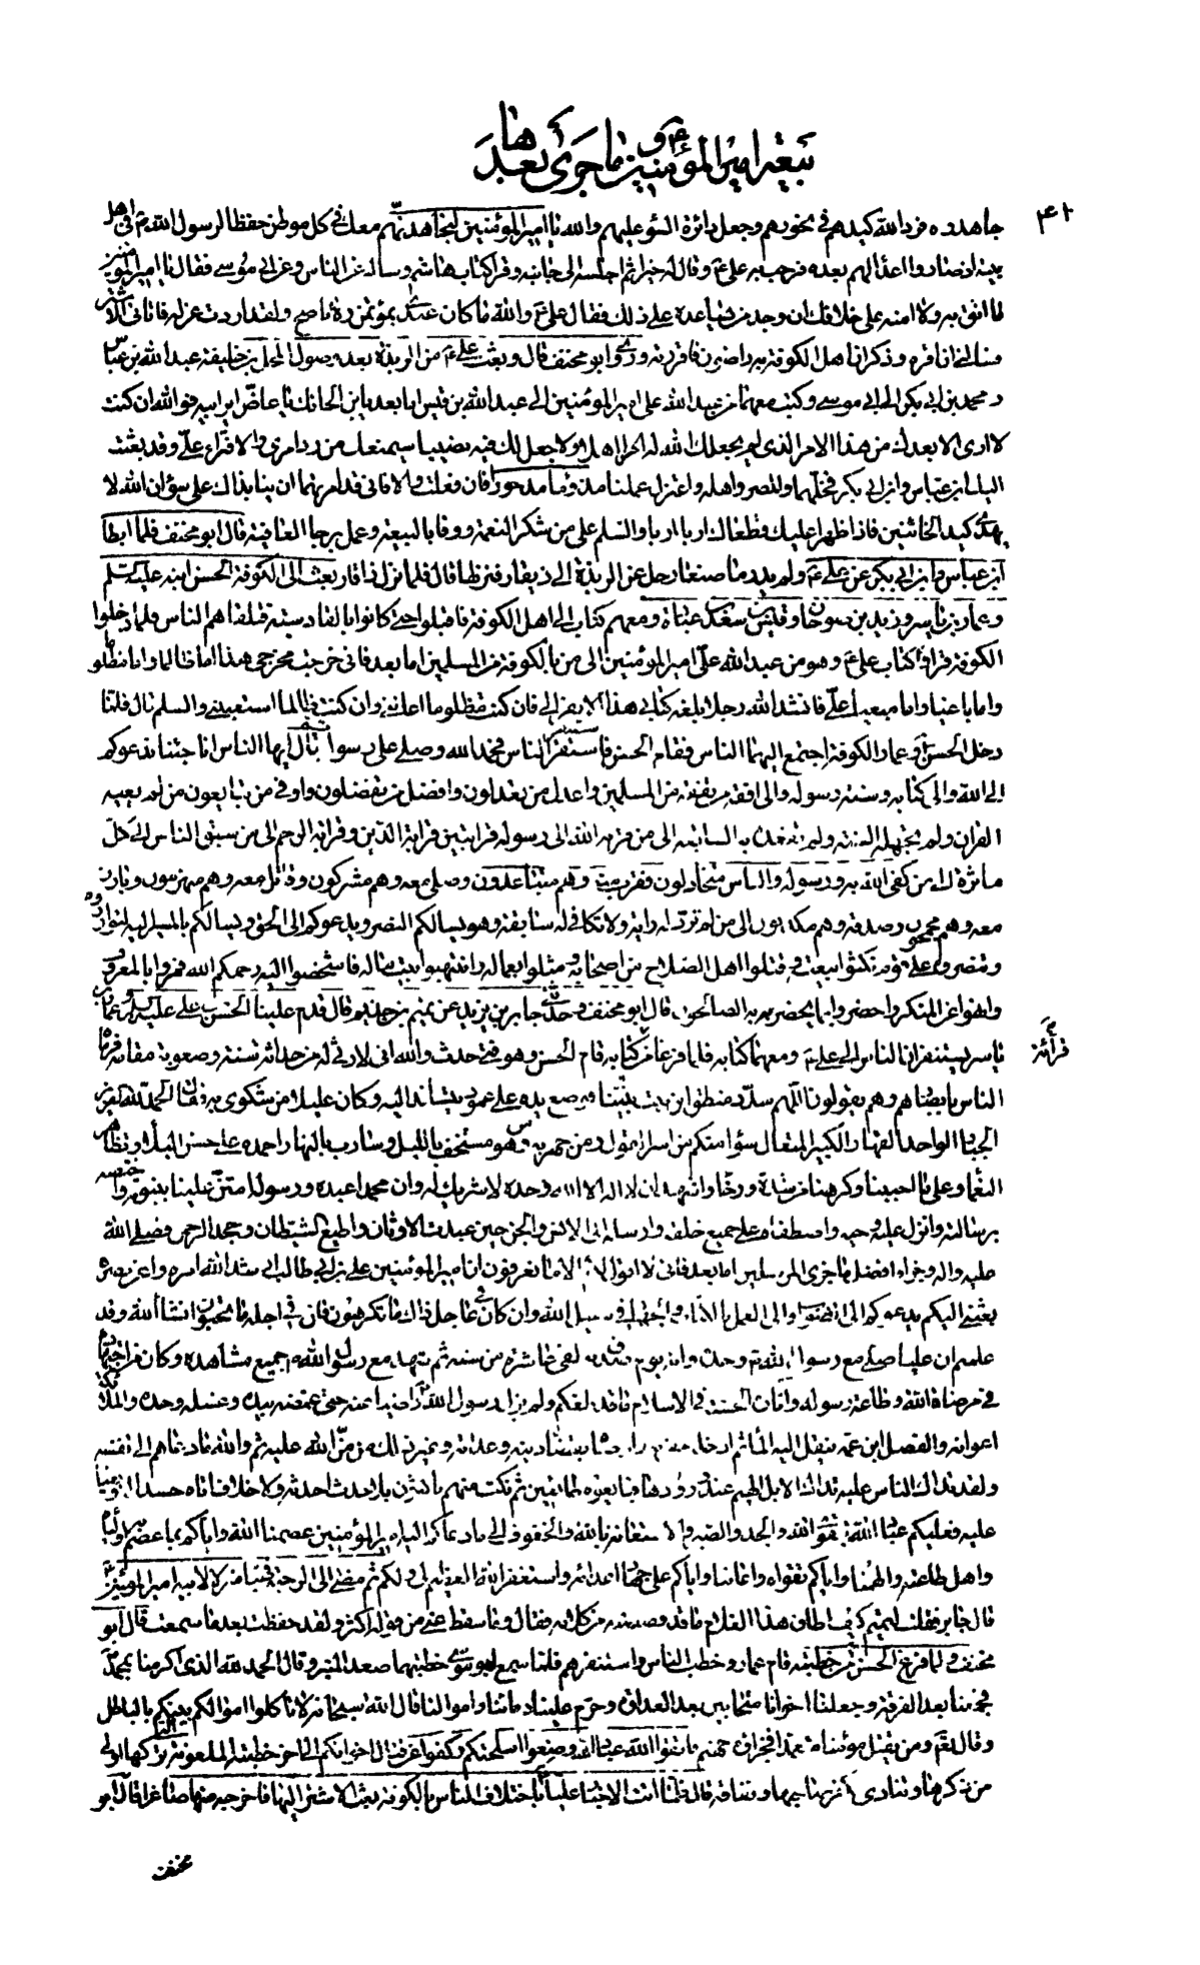 بيعة امير المؤمنين ع و ما جرى بعدها
٤١٠
جاهدوه فرد الله كيدهم في نحورهم وجعل دائرة السوء عليهم والله يا امير المؤمنين لنجاهدنهم معك في كل موطن حفظا لرسول الله ص في اهل
بيته اذ صاروا اعداء لهم بعده فرحب به علي ع وقال له خيرا ثم اجلسه الى جانبه وقرأ كتاب هاشم وسأله عن الناس وعن ابي موسى فقال يا امير المؤمنين
ما اثق به ولا امنه على خلافك ان وجد من يساعده على ذلك فقال علي ع والله ما كان عندي بمؤتمن ولا ناصح ولقد اردت عزله فاتاني الاشتر
فسالني ان اقره وذكر ان اهل الكوفة به راضون فاقررته وروى ابو مخنف قال وبعث علي ع من الربذة بعد وصول المحل بن خليفة عبد الله بن عباس
ومحمد بن ابي بكر الى ابي موسى وكتب معهما من عبد الله علي امير المؤمنين الى عبد الله بن قيس اما بعد يابن الحائك يا عاض اير ابيه فوالله ان كنت
لارى الا بعدك من هذا الامر الذي لم يجعلك الله له اهلا ولا جعل لك فيه نصيبا سيمنعك من رد امري والافتراء علي وقد بعثت
اليك ابن عباس وابن ابي بكر فخلهما والمصر واهله واعتزل عملنا مذموما مدحورا فان فعلت والا فاني قد امرتهما ان ينابذاك على سواء ان الله لا
يهدي كيد الخائنين فاذا ظهرا عليك قطعاك اربا اربا والسلم على من شكر النعمة ووفا بالبيعة وعمل برجا العافية قال ابو مخنف فلما ابطا
ابن عباس وابن ابي بكر عن علي ع ولم يدر ما صنعا رحل عن الربذة الى ذيقار فنزلها قال فلما نزل ذاقار بعث الى الكوفة الحسن ابنه عليه السلم
وعمار بن ياسر وزيد بن صوحان وقيس بن سعد بن عبادة ومعهم كتاب الى اهل الكوفة فاقبلوا حتى كانوا بالقادسية فتلقاهم الناس فلما دخلوا
الكوفة قراوا كتاب علي ع وهو من عبد الله علي امير المؤمنين الى من بالكوفة من المسلمين اما بعد فاني خرجت مخرجي هذا اما ظالما واما مظلوما
واما باغيا واما مبغيا علي فانشد الله رجلا بلغه كتابي هذا الا نفر الي فان كنت مظلوما اعانني وان كنت ظالما استعتبني والسلم قال فلما
دخل الحسن ع وعمار الكوفة اجتمع اليهما الناس فقام الحسن فاستنفر الناس فحمد الله وصلى على رسوله ثم قال ايها الناس انا جئنا ندعوكم
الى الله والى كتابه وسنة رسوله والى افقه من تفقه من المسلمين واعدل من تعدلون وافضل من تفضلون واوفى من تبايعون من لم يعيه
القران ولم تجهله السنة ولم تقعد به السابقة الى من قربه الله الى رسوله قرابتين قرابة الدين وقرابة الرحم الى من سبق الناس الى كل
ماثرة الى من كفى الله به رسوله والناس متخاذلون فقرب منه وهم متباعدون وصلى معه وهم مشركون وقاتل معه وهم منهزمون وبارز
معه وهم محجمون وصدقه وهم مكذبون الى من لم ترد له راية ولا تكافى له سابقة وهو يسالكم النصر ويدعوكم الى الحق ويسالكم بالمسير اليه لتوازروه
وتنصروه على قوم نكثوا بيعته وقتلوا اهل الصلاح من اصحابه ومثلوا بعماله وانتهبوا بيت ماله فاشخصوا اليه رحمكم الله فمروا بالمعروف
وانهوا عن المنكر واحضروا بما يحضر به الصالحون قال ابو مخنف وحدثني جابر بن يزيد عن تميم بن حذيم قال قدم علينا الحسن بن علي عليه السلم وعمار بن
ياسر يستنفران الناس الى علي ع ومعهما كتابه فلما فرغا من كتابه قام الحسن وهو فتى حدث والله اني لارثي له من حداثة سنه وصعوبة مقامه فرماه
قرائة
الناس بابصارهم وهم يقولون اللهم سدد منطق ابن بنت نبينا فوضع يده على عمود يتساند اليه وكان عليلا من شكوى به فقال الحمد لله العزيز
الجبار الواحد القهار الكبير المتعال سواء منكم من اسر القول ومن جهر به ومن هو مستخف بالليل وسارب بالنهار احمده على حسن البلاء وتظاهر
النعماء وعلى ما احببنا وكرهنا من شدة ورخاء واشهد ان لا اله الا الله وحده لا شريك له وان محمدا عبده ورسوله امتن علينا بنبوته واختصه
برسالته وانزل عليه وحيه واصطفاه على جميع خلقه وارسله الى الانس والجن حين عبدت الاوثان واطيع الشيطان وجحد الرحمن فصلى الله
عليه واله وجزاه افضل ما جزى المرسلين اما بعد فاني لا اقول لكم الا ما تعرفون ان امير المؤمنين علي بن ابي طالب ارشد الله امره واعز نصره
بعثني اليكم يدعوكم الى الصواب والى العمل بالكتاب والجهاد في سبيل الله وان كان في عاجل ذاك ما تكرهون فان في اجله ما تحبون انشاء الله وقد
علمتم ان عليا صلى مع رسول الله ص وحده وانه يوم صدق به لفي عاشرة من سنه ثم شهد مع رسول الله ص جميع مشاهده وكان من اجتهاده
في مرضاة الله وطاعة رسوله واثاره الحسنة في الاسلام ما قد بلغكم ولم يزل رسول الله ص راضيا عنه حتى غمضه بيده وغسله وحده والملائكة
اعوانه والفضل ابن عمه ينقل اليه الماء ثم ادخله حفرته واوصاه بقضاء دينه وعداته وغير ذلك من من الله عليه ثم والله ما دعاهم الى نفسه
ولقد تداك الناس عليه تداك الابل الهيم عند ورودها فبايعوه طائعين ثم نكث منهم ناكثون بلا حدث احدثه ولا خلاف اتاه حسدا له وبغيا
عليه فعليكم عباد الله بتقوى الله والجد والصبر والاستعانة بالله والخفوف الى ما دعاكم اليه امير المؤمنين عصمنا الله واياكم بما عصم به اولياءه
واهل طاعته والهمنا واياكم تقواه واعاننا واياكم على جهاد اعدائه واستغفر الله العظيم لي ولكم ثم مضى الى الرحبة فهيا منزلا لابيه امير المؤمنين
قال جابر فقلت لتميم كيف اطاق هذا الغلام ما قد قصصته من كلامه فقال وما سقط عني من قوله اكثر ولقد حفظت بعد ما سمعت قال ابو
مخنف ولما فرغ الحسن من خطبته قام عمار وخطب الناس واستنفرهم فلما سمع ابو موسى خطبتهما صعد المنبر وقال الحمد لله الذي اكرمنا بمحمد
فجمعنا بعد الفرقة وجعلنا اخوانا متحابين بعد العداوة وحرم علينا دماءنا واموالنا قال الله سبحانه لا تاكلوا اموالكم بينكم بالباطل
وقال تعم ومن يقتل مؤمنا متعمدا فجزاؤه جهنم فاتقوا الله عباد الله وضعوا اسلحتكم وكفوا عن قتال اخوانكم الى اخر خطبته الملعونة تركها اولى
من ذكرها وتنادى
مخنف